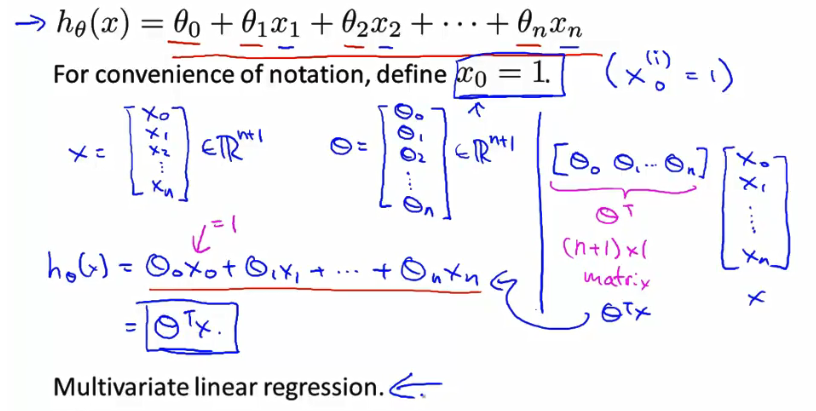 → hθ(x) = θ₀ + θ₁x₁ + θ₂x₂ + ⋯ + θₙxₙ
For convenience of notation, define x₀ = 1. (x₀⁽ⁱ⁾ = 1)
x = [x₀ x₁ x₂ ⋮ xₙ] ∈ ℝⁿ⁺¹ θ = [θ₀ θ₁ θ₂ ⋮ θₙ] ∈ ℝⁿ⁺¹
[θ₀ θ₁ ⋯ θₙ] [x₀ x₁ ⋮ xₙ]
θᵀ
(n+1) x 1
matrix
x
θᵀx
=1
hθ(x) = θ₀x₀ + θ₁x₁ + ⋯ + θₙxₙ
= θᵀx.
Multivariate linear regression. ←